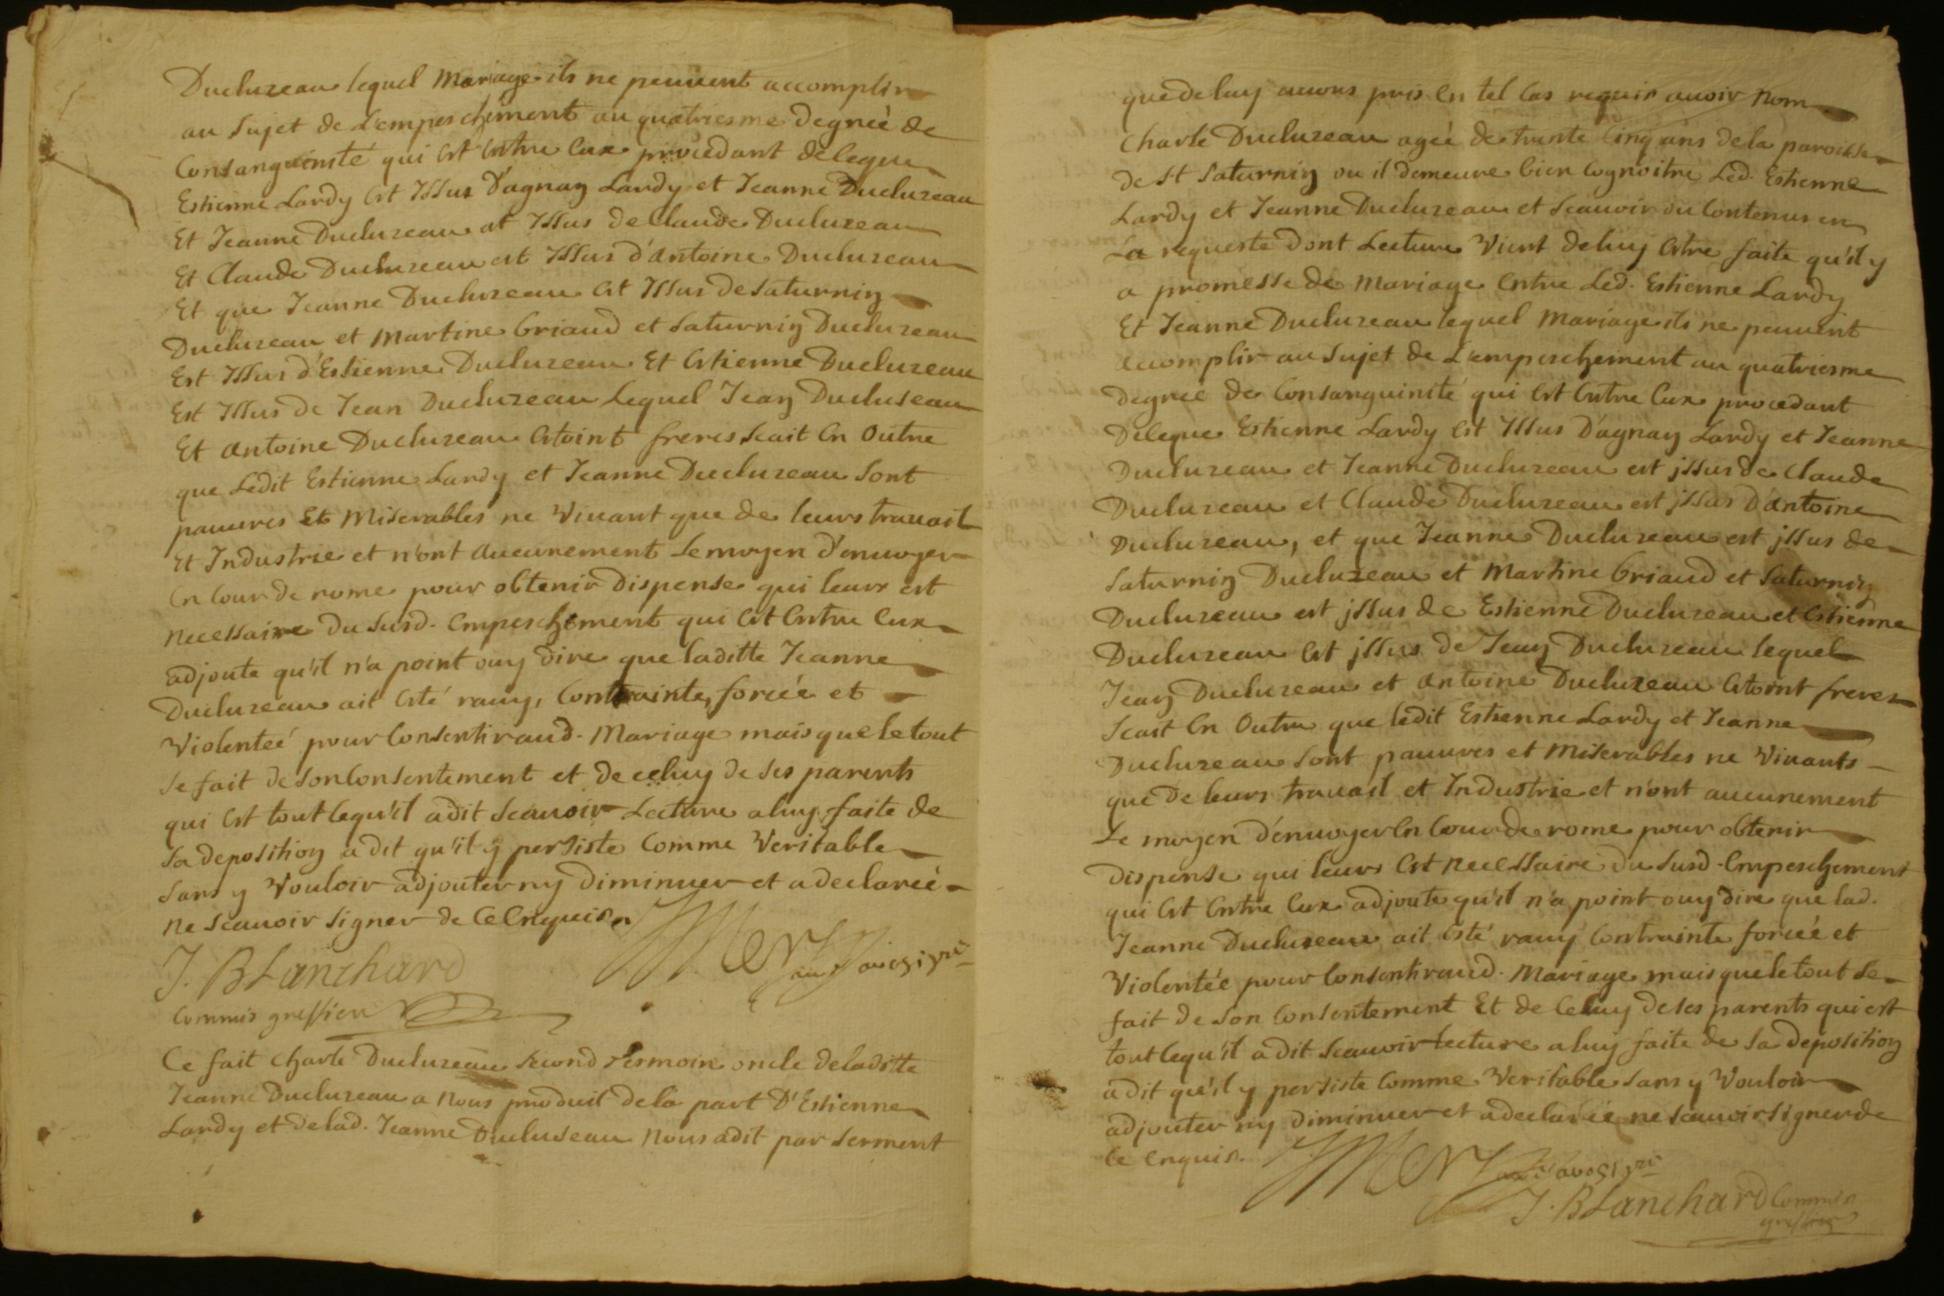 Ducluzeau lequel Mariage ils ne peuuent accomplir
au Sujet de L'empeschement au quatriesme degreé de
Consanguinité qui est entre Eux procedant de ce que
Estienne Lardy est Issus d'agnan Lardy et Jeanne Ducluzeau
Et Jeanne Ducluzeau est Issus de Claude Ducluzeau
Et Claude Ducluzeau est Issus d'antoine Ducluzeau
Et que Jeanne Ducluzeau est Issus de Saturnin
Ducluzeau et Martine Griaud et Saturnin Ducluzeau
Est Issus d'Estienne Ducluzeau Et Estienne Ducluzeau
Est Issus de Jean Ducluzeau Lequel Jean Ducluseau
Et antoine Ducluzeau Estoint freres Scait En Outre
que Ledit Estienne Lardy et Jeanne Ducluzeau Sont
pauures Et Miserables ne Viuant que de leurs trauail
Et Industrie et n'ont aucunement Le moyen d'enuoyer
En Cour de rome pour obtenir dispense qui leurs est
Necessaire du Susd. Empeschement qui est Entre Eux
adjoute qu'il n'a point ouy dire que laditte Jeanne
Ducluzeau ait esté rauy, Contrainte, forcée et
Violenteé pour Consentir aud. Mariage mais que le tout
Se fait de Son Consentement et de celuy de Ses parents
qui est tout ce qu'il a dit Scauoir Lecture a luy faite de
Sa deposition a dit qu'il y persiste Comme Veritable
Sans y Vouloir adjouter ny diminuer et a declareé
Ne Scauoir Signer de Ce Enquis.
J. BLanchard
Commis greffier
Ce fait Charle Ducluzeau Second tesmoin oncle de laditte
Jeanne Ducluzeau a Nous produit de la part D'Estienne
Lardy et de lad. Jeanne Ducluseau Nous a dit par Serment
que de luy auons pris En tel Cas requis auoir Nom
Charle Ducluzeau ageé de trente Cinq ans de la paroisse
de St Saturnin ou il demeure bien Cognoitre Led. Estienne
Lardy et Jeanne Ducluzeau et Scauoir du Contenus en
La requeste dont Lecture Vient de luy Estre faite qu'il y
a promesse de Mariage Entre Led. Estienne Lardy
Et Jeanne Ducluzeau lequel Mariage ils ne peuuent
accomplir au Sujet de L'empeschement au quatriesme
Degreé de Consanguinité qui est Entre Eux procedant
De ce que Estienne Lardy Est Issus D'agnan Lardy et Jeanne
Ducluzeau et Jeanne Ducluzeau est jssus de Claude
Ducluzeau et Claude Ducluzeau est jssus D'antoine
Ducluzeau, et que Jeanne Ducluzeau est jssus de
Saturnin Ducluzeau et Martine Griaud et Saturnin
Ducluzeau est jssus de Estienne Ducluzeau et Estienne
Ducluzeau est jssus de Jean Ducluzeau lequel
Jean Ducluzeau et antoine Ducluzeau Estoint freres
Scait En Outre que ledit Estienne Lardy et Jeanne
Ducluzeau Sont pauures et Miserables ne Viuants
que De leurs trauail et Industrie et n'ont aucunement
Le moyen d'enuoyer En Cour de rome pour obtenir
dispense qui leurs Est Necessaire du Susd. Empeschement
qui est Entre Eux adjoute qu'il n'a point ouy dire que lad.
Jeanne Ducluzeau ait Esté rauy Contrainte forceé et
Violentée pour Consentir aud. Mariage mais que le tout Se
fait de Son Consentement Et de Celuy de Ses parents qui est
tout ce qu'il a dit Scauoir lecture a luy faite de Sa deposition
a dit qu'il y persiste Comme Veritable Sans y Vouloir
adjouter ny diminuer et a declareé ne Scauoir Signer de
Ce Enquis.
J. BLanchard Commis
greffier